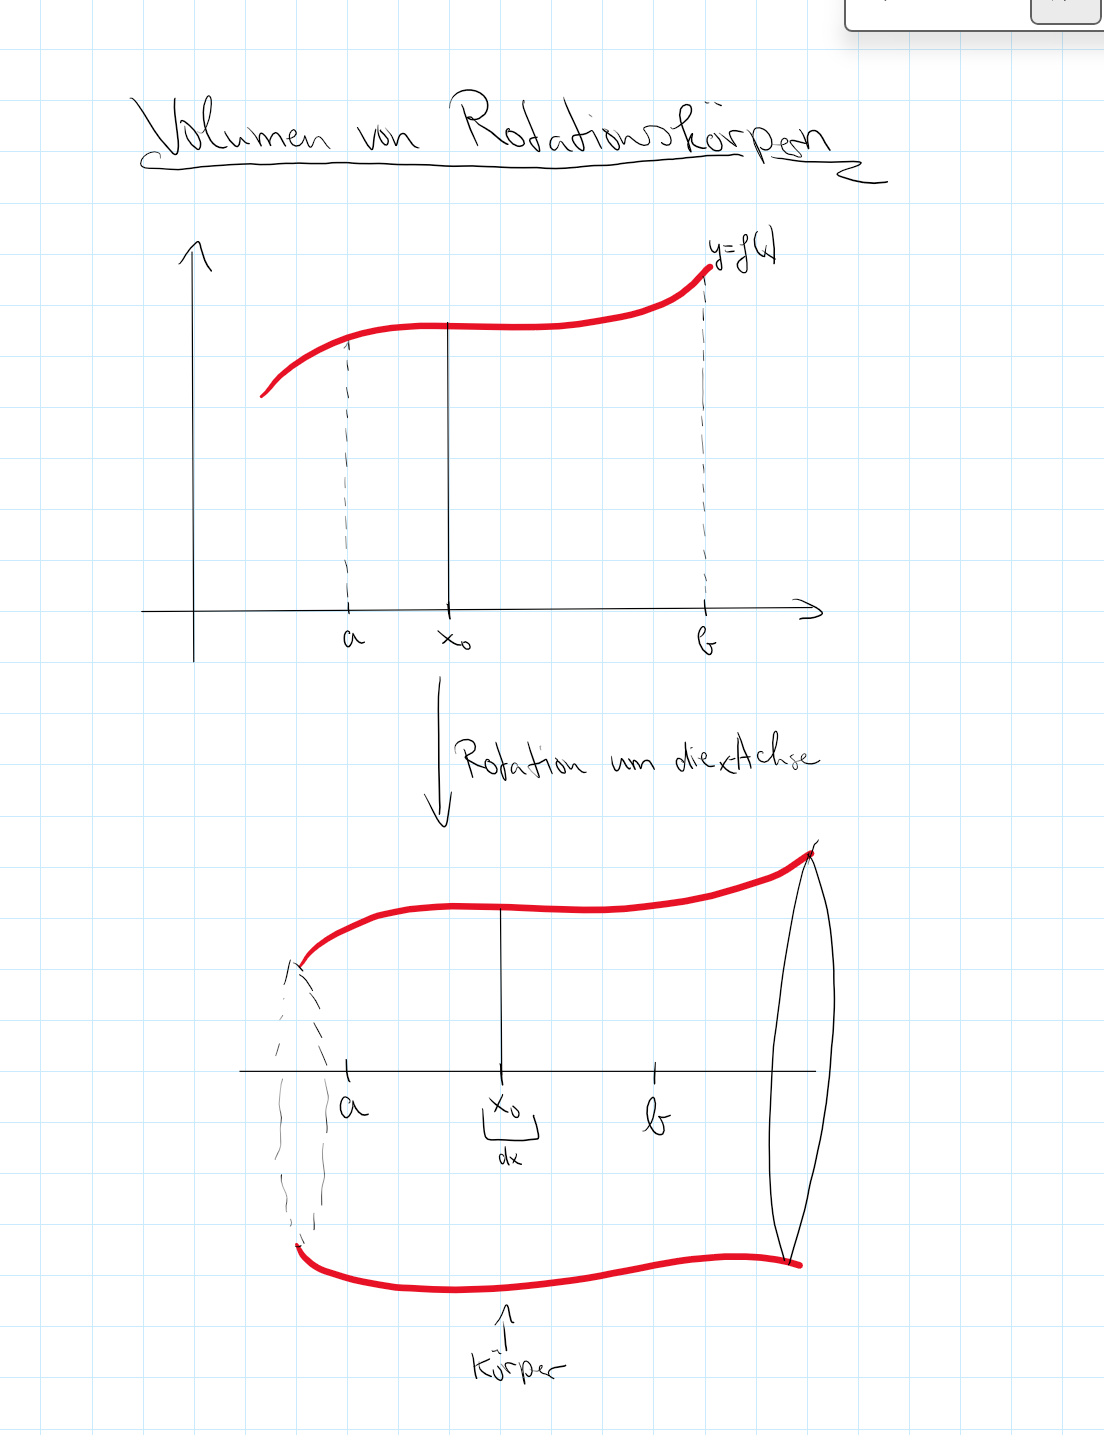 Volumen von Rotationskörpern
y=f(x)
a x₀ b
Rotation um die x-Achse
a x₀ b
dx
Körper